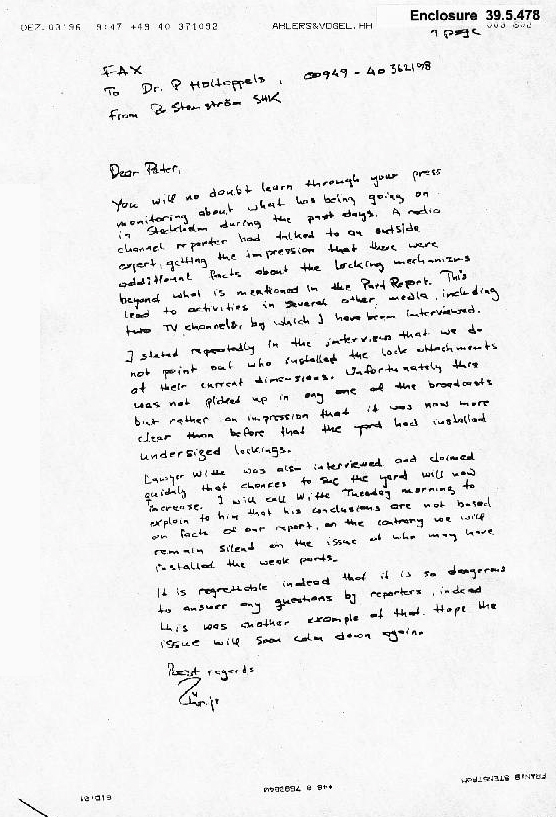 Enclosure 39.5.478
1 page
DEZ.03'96 9:47 +49 40 371092 AHLERS&VOGEL.HH
FAX
To Dr. P Holtappels, 00949-40 362198
From B Stenström SHK
Dear Peter,
You will no doubt learn through your press
monitoring about what has being going on
in Stockholm during the past days. A radio
channel reporter had talked to an outside
expert, getting the impression that there were
additional facts about the locking mechanisms
beyond what is mentioned in the Part Report. This
lead to activities in several other media, including
two TV channels, by which I have been interviewed.
I stated repeatedly in the interviews that we do
not point out who installed the lock attachments
at their current dimensions. Unfortunately this
was not picked up in any one of the broadcasts
but rather an impression that it was now more
clear than before that the yard had installed
undersized lockings.
Lawyer Witte was also interviewed and claimed
quickly that chances to sue the yard will now
increase. I will call Witte Tuesday morning to
explain to him that his conclusions are not based
on facts of our report, on the contrary we will
remain silent on the issue of who may have
installed the weak parts.
It is regrettable indeed that it is so dangerous
to answer any questions by reporters, indeed
this was another example of that. Hope the
issue will soon calm down again.
Best regards